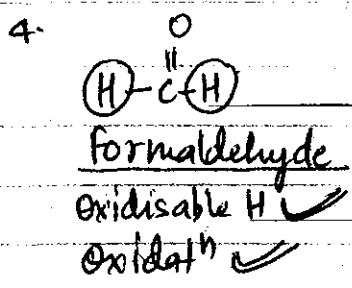 4.
O
||
H-C-H
formaldehyde
Oxidisable H ✓
Oxidatⁿ ✓